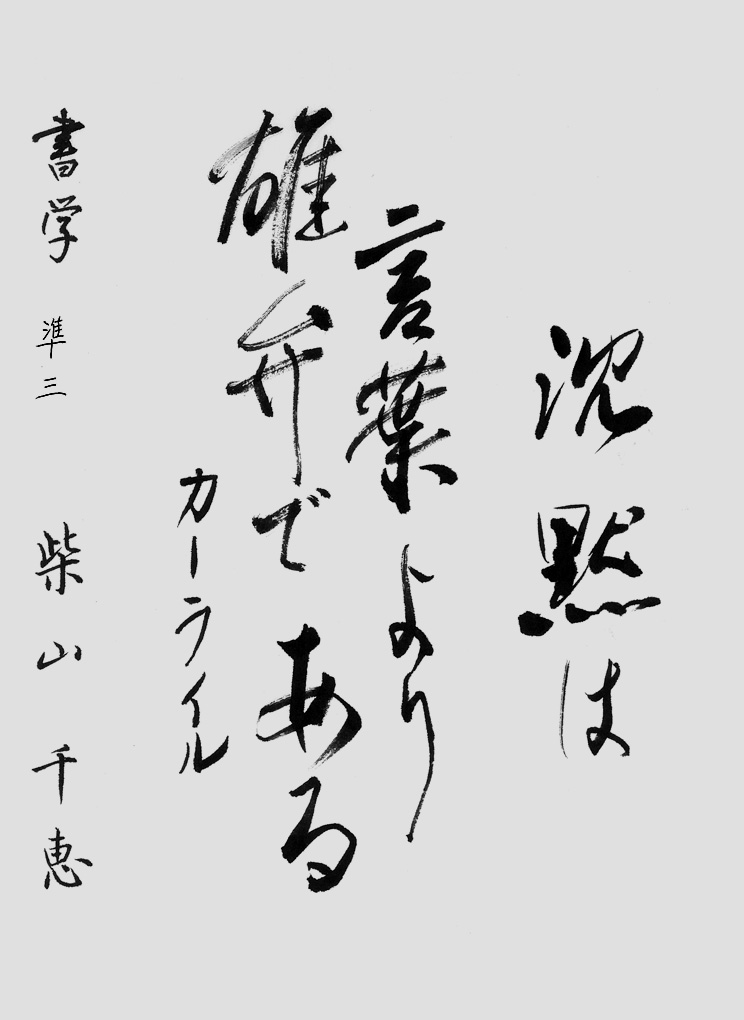 沈黙は
言葉より
雄弁である
カーライル
書学 準三 柴山千恵